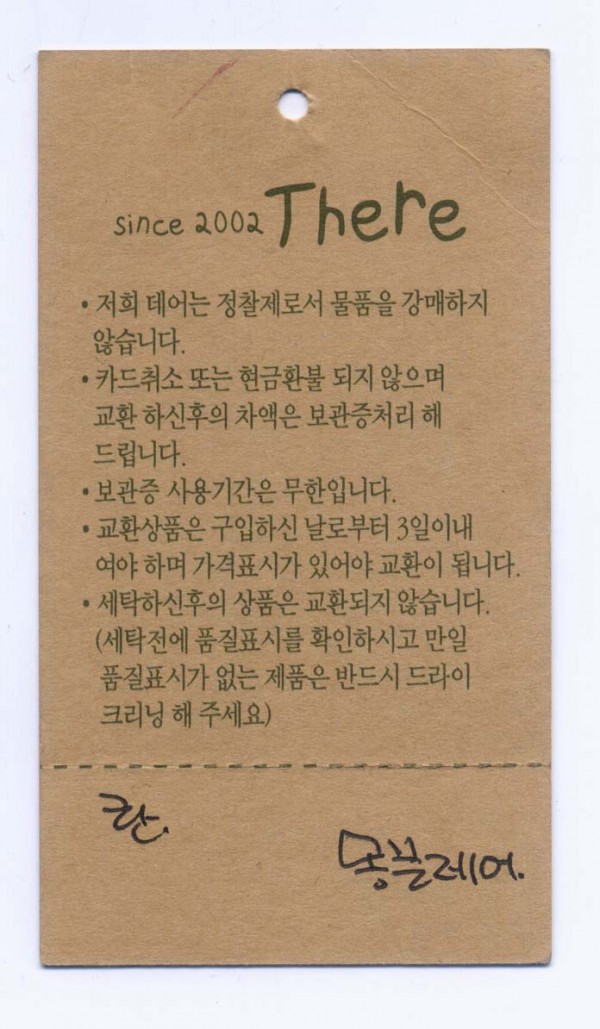 since 2002 There
• 저희 테어는 정찰제로서 물품을 강매하지
않습니다.
• 카드취소 또는 현금환불 되지 않으며
교환 하신후의 차액은 보관증처리 해
드립니다.
• 보관증 사용기간은 무한입니다.
• 교환상품은 구입하신 날로부터 3일이내
여야 하며 가격표시가 있어야 교환이 됩니다.
• 세탁하신후의 상품은 교환되지 않습니다.
(세탁전에 품질표시를 확인하시고 만일
품질표시가 없는 제품은 반드시 드라이
크리닝 해 주세요)